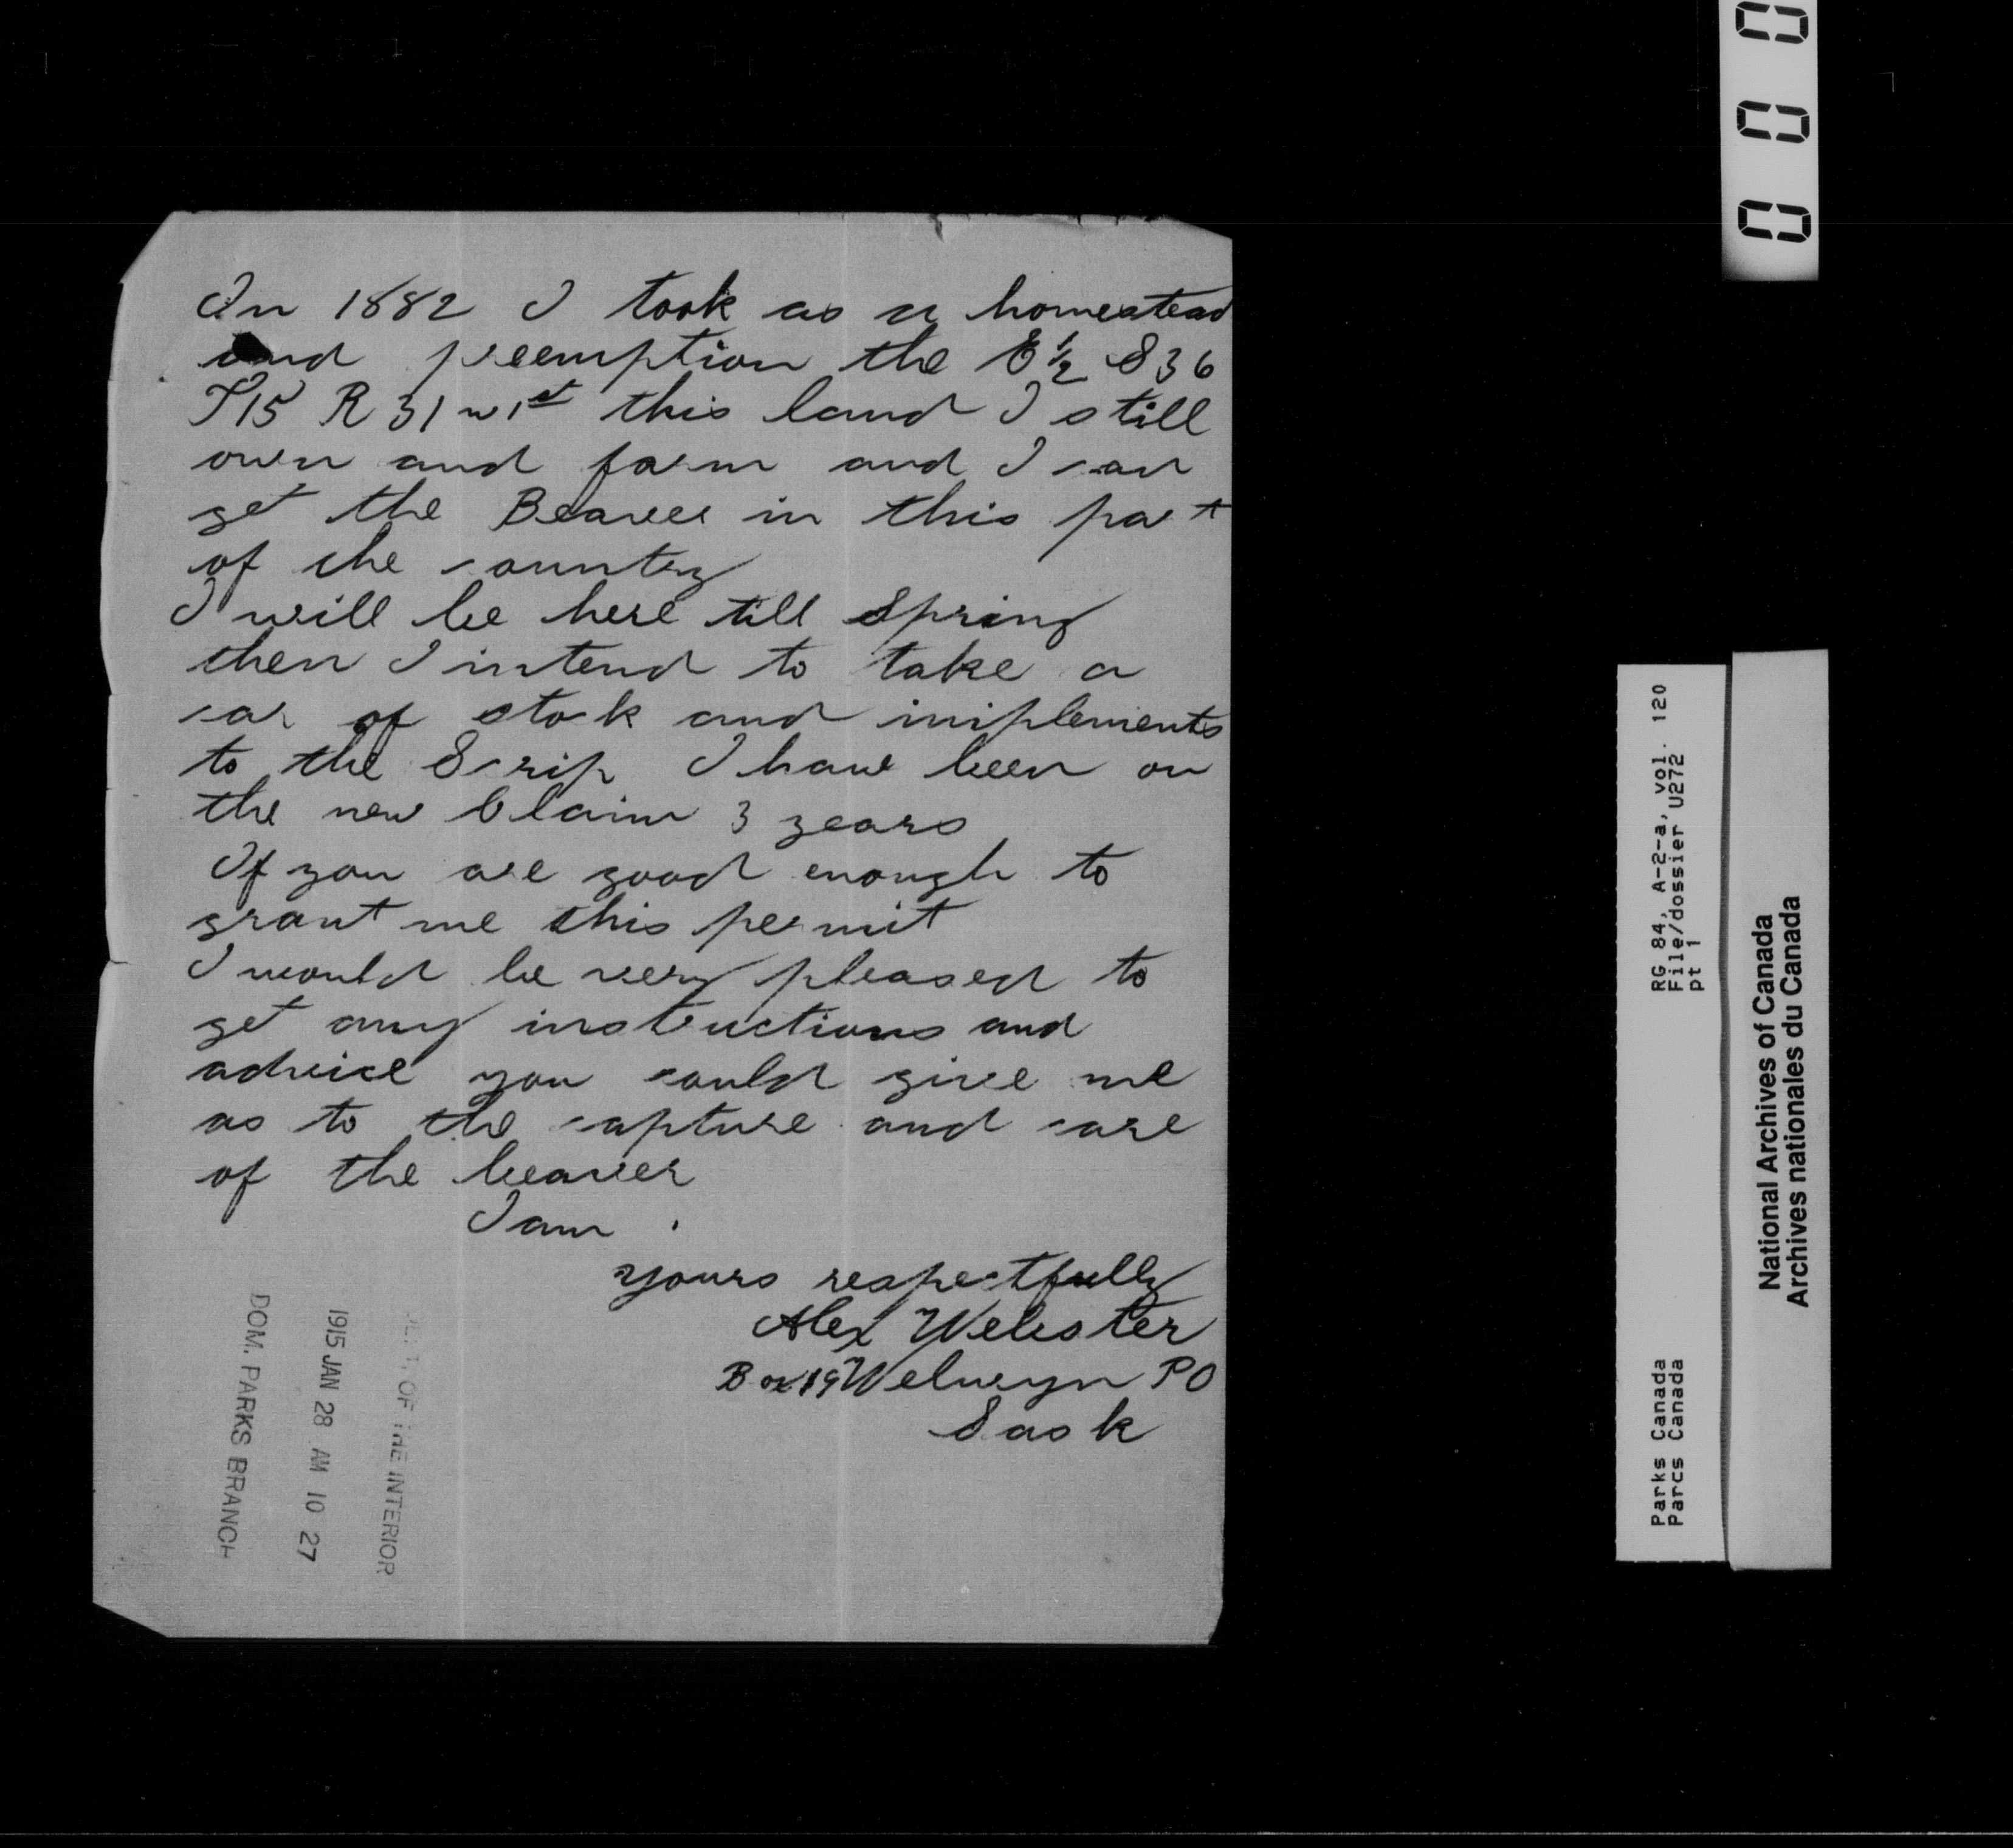 In 1882 I took as a homestead
and preemption the E½ S36
T15 R31 w 1st this land I still
own and farm and I can
get the Beaver in this part
of the country
I will be here till Spring
then I intend to take a
car of stock and implements
to the Scrip I have been on
the new Claim 3 years
If you are good enough to
grant me this permit
I would be very pleased to
get any instructions and
advice you could give me
as to the capture and care
of the beaver
I am
yours respectfully
Alex Webster
Box 19 Welwyn PO
Sask
DEPT. OF THE INTERIOR
1915 JAN 28 AM 10 27
DOM. PARKS BRANCH
000
RG 84, A-2-a, vol. 120
File/dossier U272
pt 1
Parks Canada
Parcs Canada
National Archives of Canada
Archives nationales du Canada